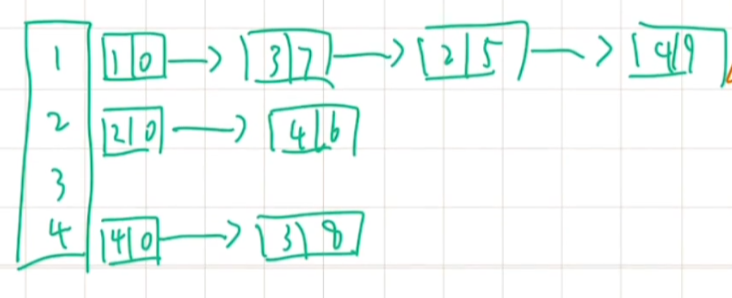 1 1|0 → 3|7 → 2|5 → 4|9
2 2|0 → 4|6
3
4 4|0 → 3|8